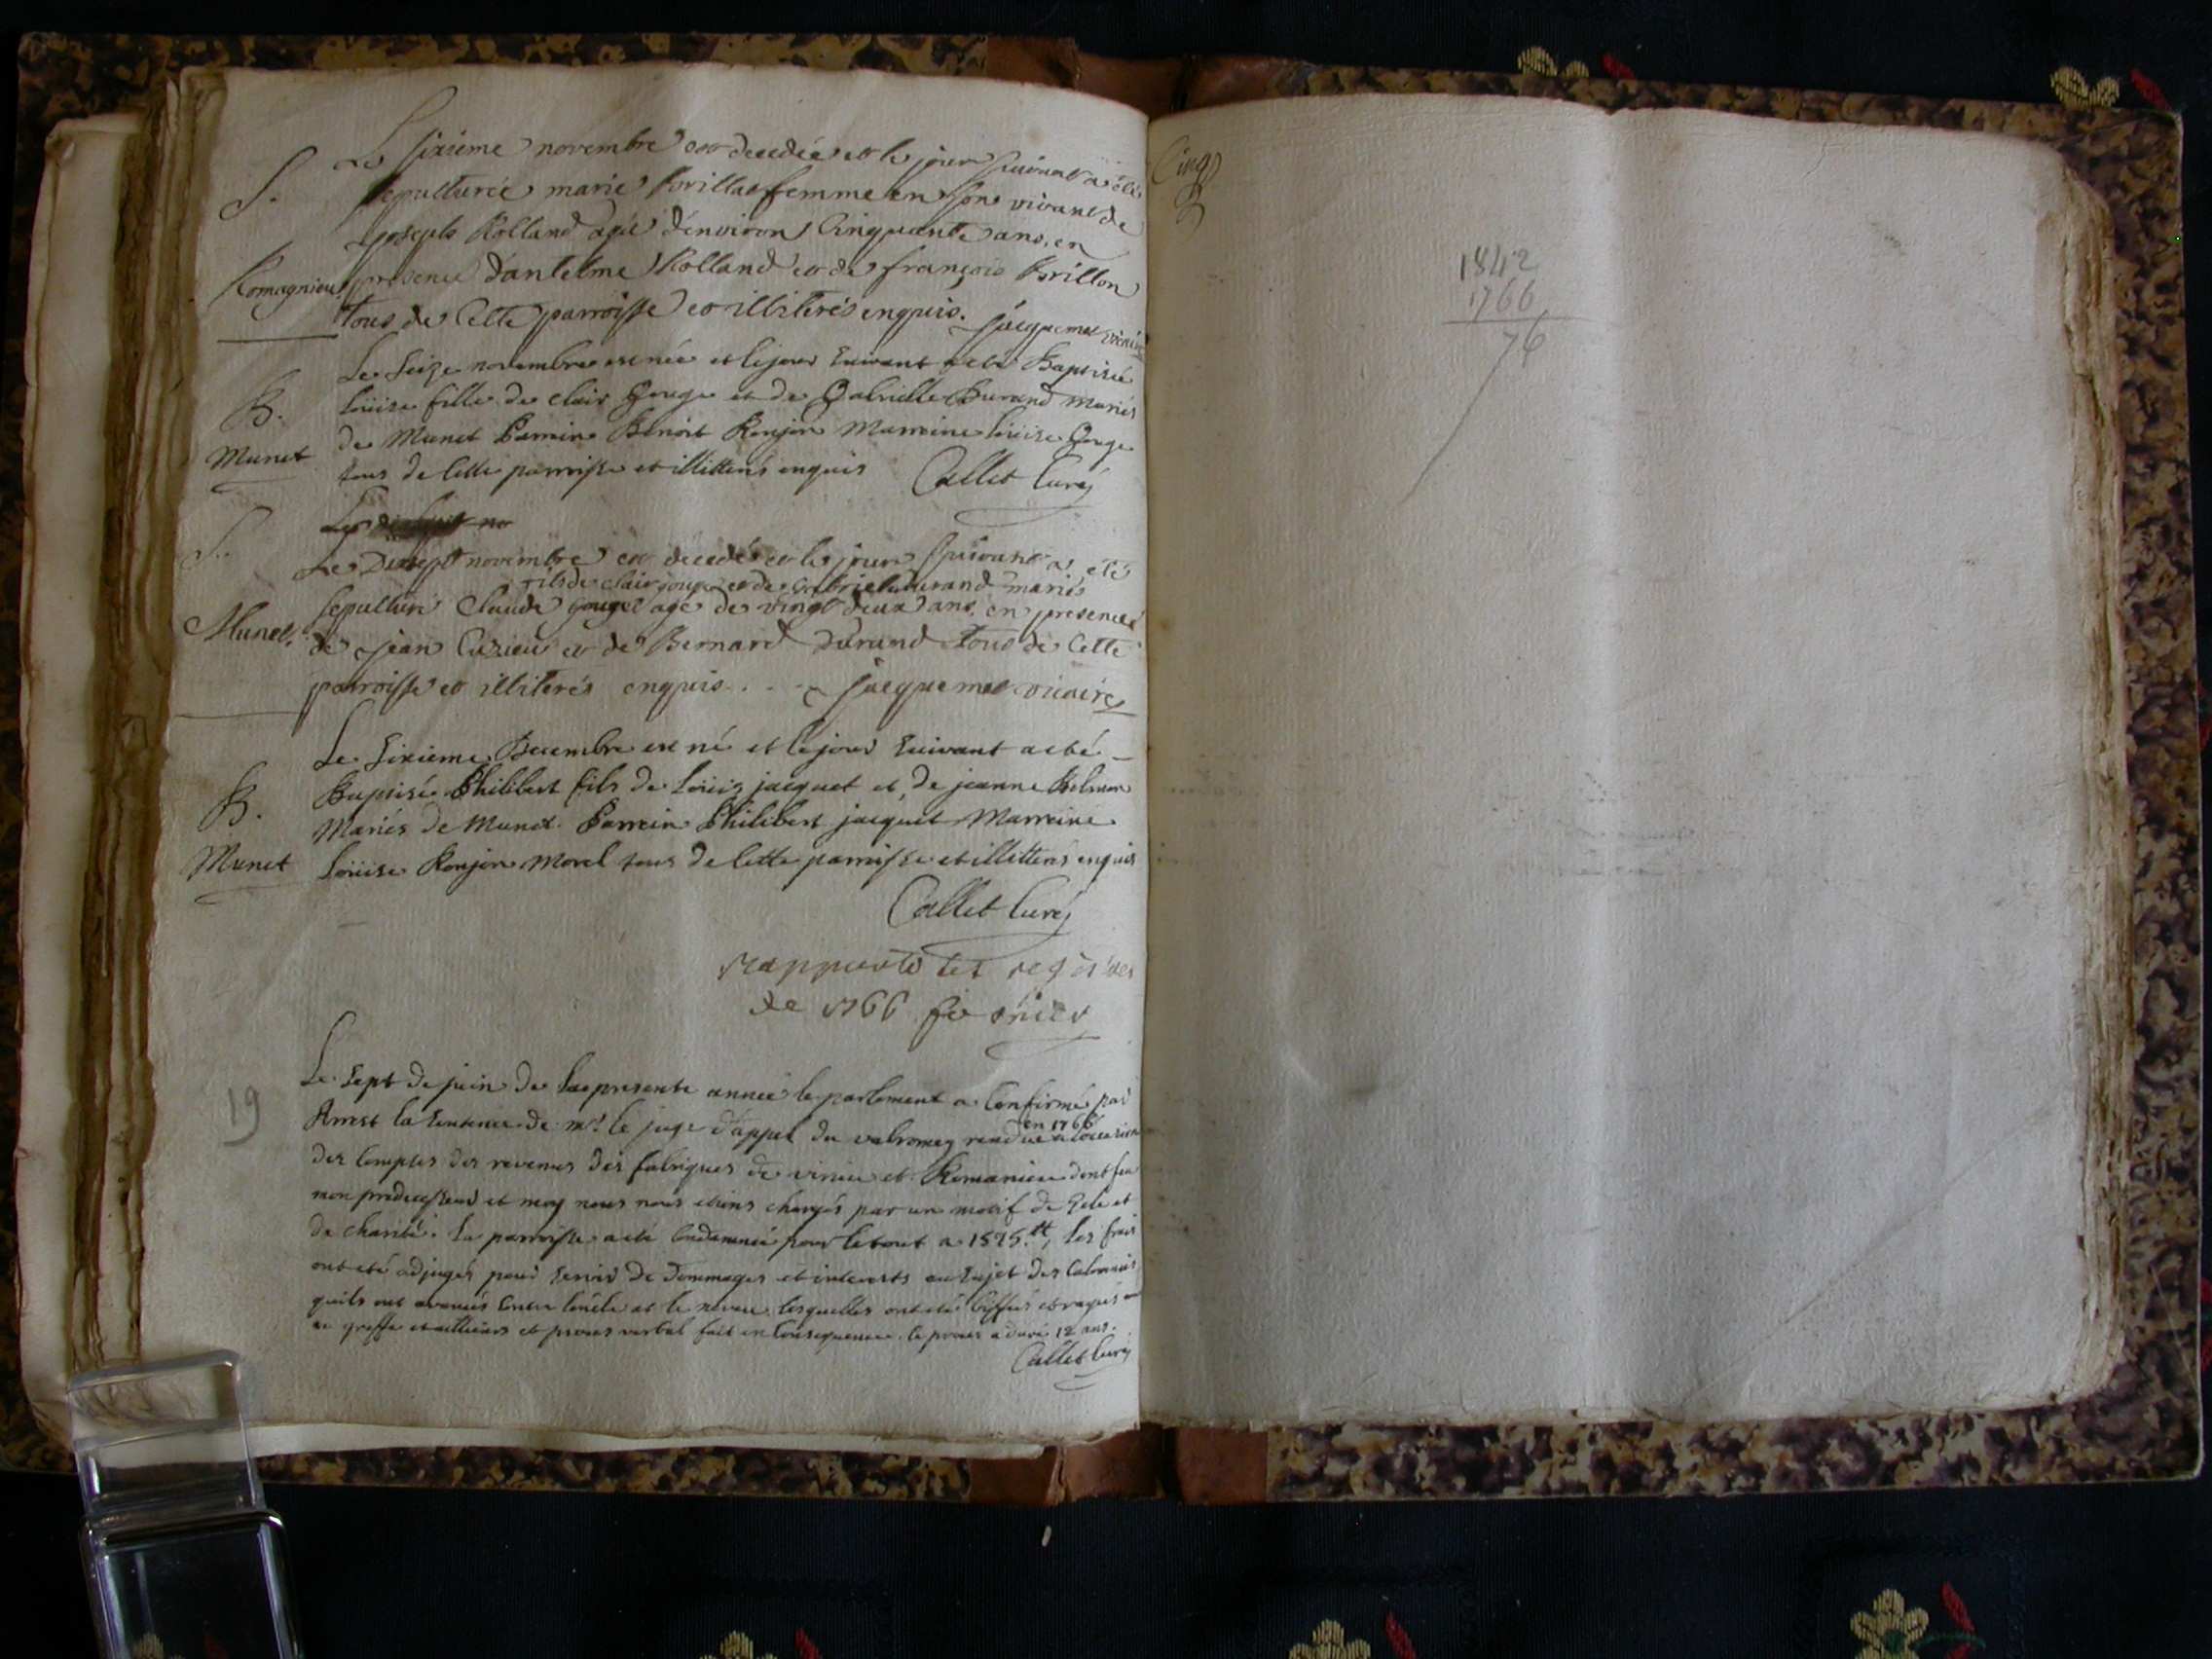 S.
Le sixieme novembre est decedée et le jour suivant a été
sepulturée marie femme en son vivant de
joseph Rolland agée d'environ Cinquante ans, en
Romagnieu
presence d'antelme Rolland et de françois Brillon
tous de Cette parroisse et illiterés enquis. jacquemet vicaire
Le Seize novembre est née et le jour Suivant a eté Baptisée
B.
Loüise fille de clair Gouge et de Gabrielle Durand Mariés
Munet
de Munet Parrain Benoit Ronjon Marraine loüise Gouge
tous de Cette parroisse et illitterés enquis Callet Curé
Le
S.
Le Dixsept novembre est decedé et le jour suivant a eté
fils de clair gouge et de Gabrielle durand mariés
sepulturé Claude gouge agé de vingt deux ans, en presence
Munet.
de jean Cuzieu et de Bernard Durand tous de Cette
parroisse et illiterés enquis . . . jacquemet vicaire
Le Sixieme Decembre est né et le jour Suivant a eté
B.
Baptisé Philibert fils de Loüis jacquet et de jeanne
Munet
Mariés de Munet. Parrain Philibert jacquet Marraine
Loüise Ronjon Morel tous de Cette parroisse et illitterés enquis
Callet Curé
rapporté les registres
de 1766
19
Le Sept de juin de la presente année le parlement a Confirmé par
en 1766
Arrest la Sentence de mr. le juge d'appel du valromey rendue a l'occasion
des Comptes des revenus des fabriques de virieu et Romanieu dont feu
mon predecesseur et moy nous nous etions chargés par un motif de Zele et
de charité. la parroisse a eté Condamnée pour le tout a 1525.tt, les frais
ont eté adjugés pour Servir de Dommages et interests au Sujet des Calomnies
qu'ils ont avancés Contre l'oncle et le neveu lesquelles ont eté biffées et rayées
au greffe et ailleurs et procès verbal fait en Consequence. le procès a duré 12 ans.
Callet Curé
Cinq
1842
1766
76